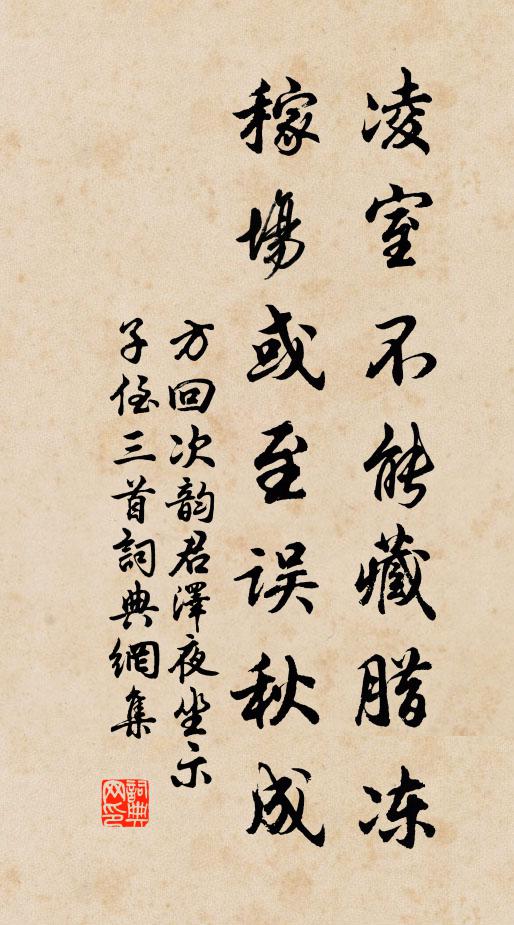 凌室不能藏腊冻
稼場或至误秋成
方回次韵君澤夜坐示
子侄三首詞典網集
詞典网印